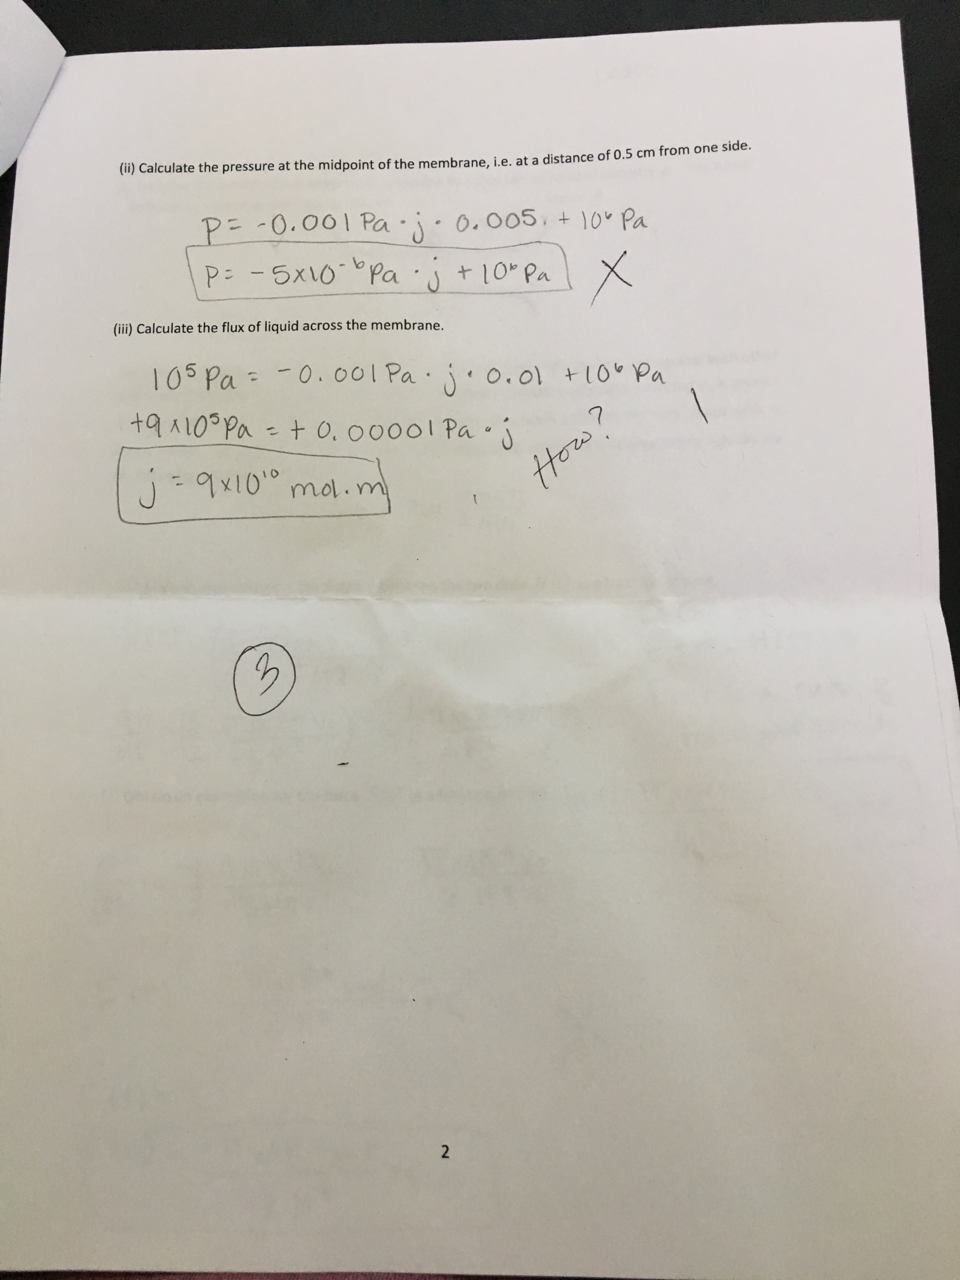 (ii) Calculate the pressure at the midpoint of the membrane, i.e. at a distance of 0.5 cm from one side.
P = -0.001 Pa · j · 0.005 + 10⁶ Pa
P = -5x10⁻⁶ Pa · j + 10⁶ Pa X
(iii) Calculate the flux of liquid across the membrane.
10⁵ Pa = -0.001 Pa · j · 0.01 + 10⁶ Pa
+9x10⁵ Pa = + 0.00001 Pa · j How? 1
j = 9x10¹⁰ mol.m
3
2